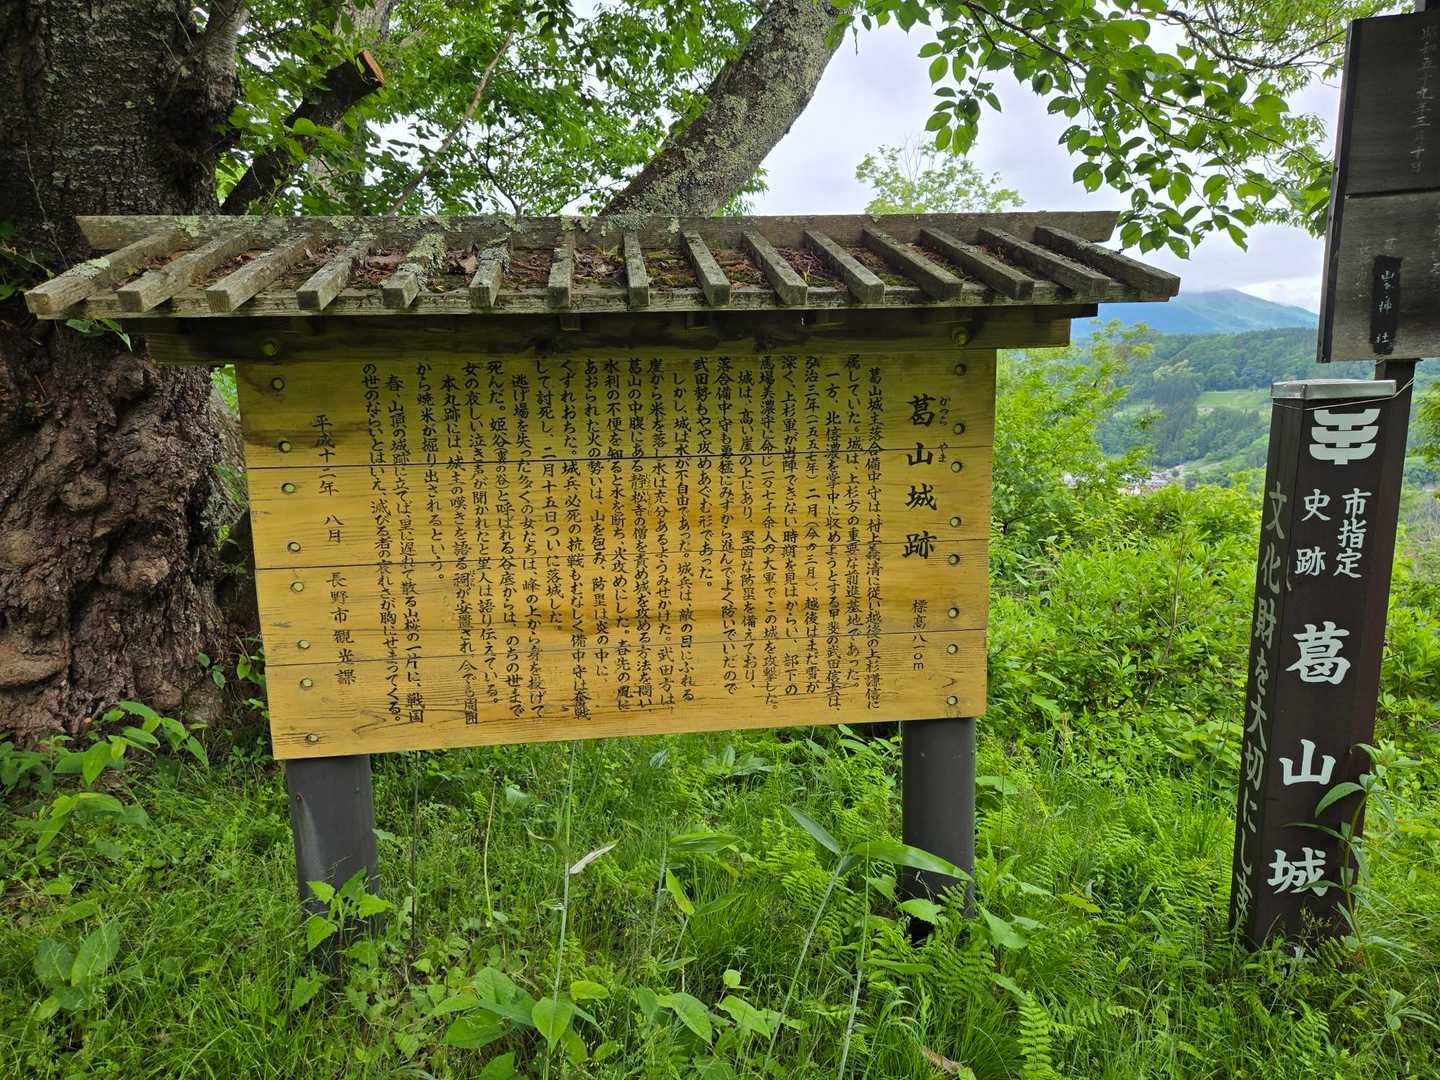 葛山城跡 標高八一〇m
かつら やま
葛山城主落合備中守は村上義清に従い越後の上杉謙信に
属していた。城は、上杉方の重要な前進基地であった。
一方、北信濃を掌中に収めようとする甲斐の武田信玄は、
弘治三年(一五五七年)二月(今の三月)、越後はまだ雪が
深く、上杉軍が出陣できない時期を見はからい、部下の
馬場美濃守に命じ一万七千余人の大軍でこの城を攻撃した。
城は、高い崖の上にあり、堅固な防塁を備えており、
落合備中守も勇猛にみずから進んでよく防いだので
武田勢もやや攻めあぐむ形であった。
しかし、城は水が不自由であった。城兵は敵の目にふれる
崖から米を落し水は充分あるようみせかけた。武田方は、
葛山の中腹にある静松寺の僧を責め城を攻める方法を問い
水利の不便を知ると水を断ち、火攻めにした。春先の風に
あおられた火の勢いは、山を包み、防塁は炎の中に、
くずれおちた。城兵必死の抗戦もむなしく備中守は奮戦
して討死し、二月十五日ついに落城した。
逃げ場を失った多くの女たちは、峰の上から身を投げて
死んだ。姫谷(重の谷)と呼ばれる谷底からは、のちの世まで
女の哀しい泣き声が聞かれたと里人は語り伝えている。
本丸跡には、城主の嘆きを語る祠が安置され、今でも周囲
から焼米が掘り出されるという。
春、山頂の城跡に立てば、里に遅れて散る山桜の一片に、戦国
の世のならいとはいえ、滅びる者の哀れさが胸にせまってくる。
平成十二年 八月 長野市観光課
市指定
史跡
葛山城
文化財を大切にしま
山之神社